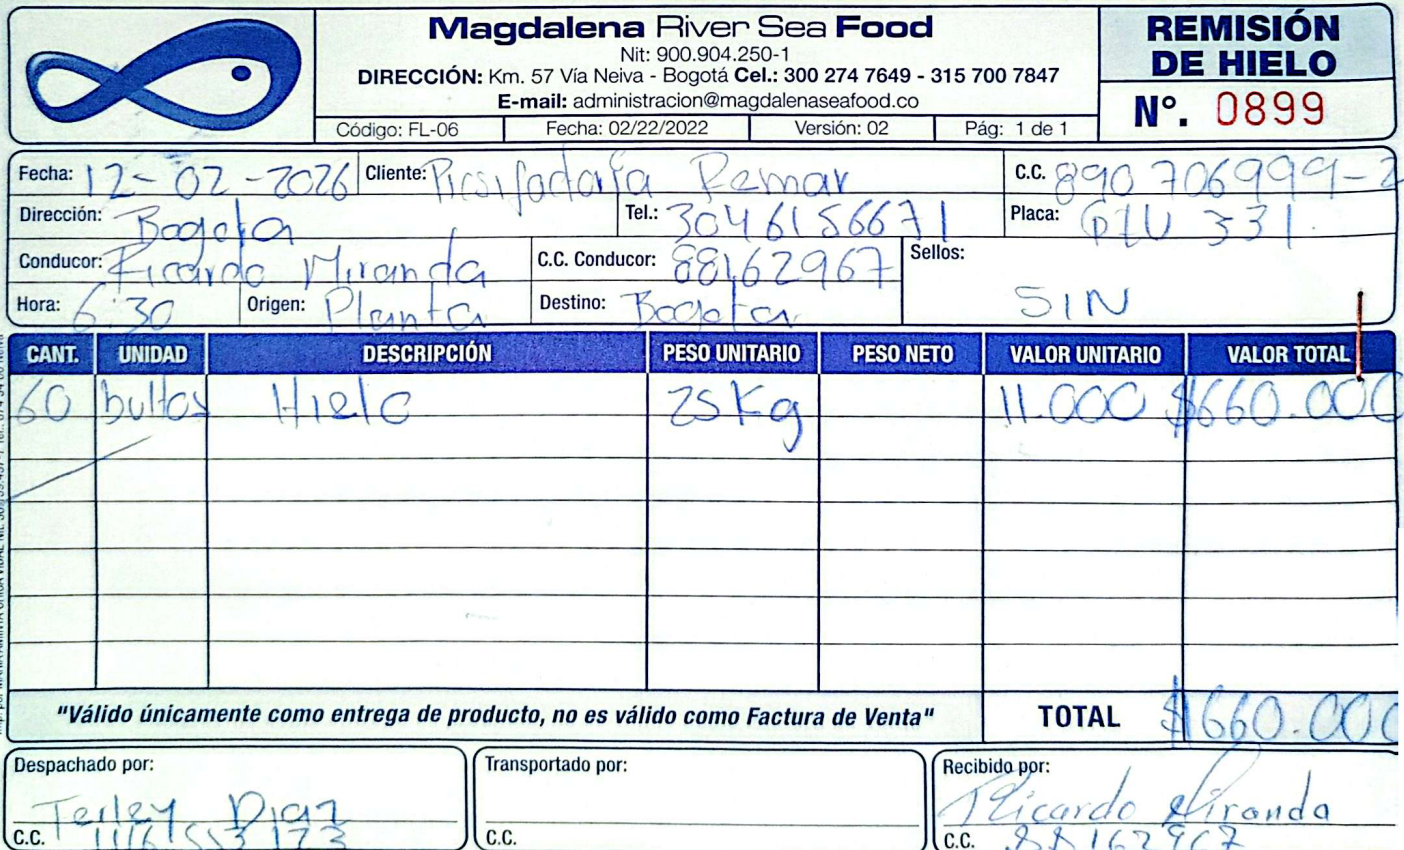 Magdalena River Sea Food
Nit: 900.904.250-1
DIRECCIÓN: Km. 57 Vía Neiva - Bogotá Cel.: 300 274 7649 - 315 700 7847
E-mail: administracion@magdalenaseafood.co
Código: FL-06 Fecha: 02/22/2022 Versión: 02 Pág: 1 de 1
REMISIÓN
DE HIELO
N°. 0899
Fecha: 12-02-2026 Cliente: Remar C.C. 890706999-2
Dirección: Bogota Tel.: 3046156671 Placa: 331
Conducor: Ricardo Miranda C.C. Conducor: 88162967 Sellos:
Hora: 6:30 Origen: Planta Destino: Bogota SIN
CANT. UNIDAD DESCRIPCIÓN PESO UNITARIO PESO NETO VALOR UNITARIO VALOR TOTAL
60 bultos Hielo 25 Kg 11.000 $660.000
"Válido únicamente como entrega de producto, no es válido como Factura de Venta" TOTAL $660.000
Despachado por: Transportado por: Recibido por:
Diaz Ricardo Miranda
C.C. C.C. C.C. 88162967